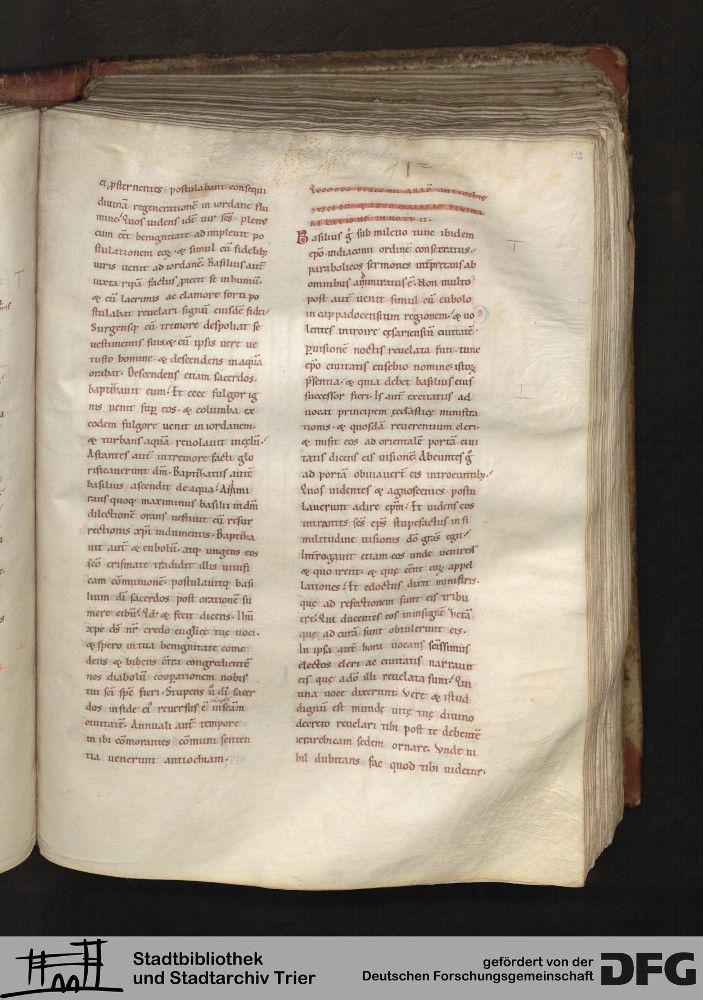 ei psternentes postulabant consequi
divinā regenerationē in iordanis flu
mine. Quos videns idē vir scs̄ plenus
cum eēt benignitate ad implevit po
stulationem eoꝝ. & simul cū fidelibꝫ
viris venit ad iordanē. Basilius autē
iuxta ripā factus piecit se in humū.
& cū lacrimis ac clamore forti po
stulabat revelari signū eiusdē fidei.
Surgensqꝫ cū tremore despoliat se
vestimentis suis. & cū ipsis vere ve
tusto homine. & descendens in aquā
orabat. Descendens etiam sacerdos.
baptizavit eum. Et ecce fulgor ig
nis venit sup eos. & columba ex
eodem fulgore venit in iordanem.
& turbans aquā revolavit in celū.
Astantes autē in tremore facti glo
rificaverunt dm̄. Baptizatus autē
basilius ascendit de aqua. Ammi
rans quoqꝫ maximinus basilii in dm̄
dilectionē orans vestivit eū resur
rectionis xp̄i indumentis. Baptiza
vit autē & eubolū. atqꝫ ungens eos
scō crismate tradidit illis vivifi
cam cōmunionē. postulavitqꝫ basi
lium dī sacerdos post orationē su
mere cibū. Qd & fecit dicens. Ihū
xpe ds̄ nr̄ credo euglice tue voci.
& spero in tua benignitate come
dens & bibens cōtra congredientē
nos diabolū cooperationem nobis
tui sc̄i sps̄ fieri. Stupens ū dī sacer
dos in fide ei reversus ē in scam
civitatē. Annuali autē tempore
in ibi cōmorantes cōmuni senten
tia venerunt antiochiam.
Basilius g̊ sub miletio tunc ibidem
epō in diaconii ordinē consecratus.
parabolicos sermones intpretans ab
omnibus ammiratus ē. Non multo
post autē venit simul cū eubolo
in cappadocensium regionem. & vo
lentes introire cesariensiū civitatē.
p visionē noctis revelata sunt tunc
epō civitatis eusebio nomine istoꝝ
psentia. & quia debet basilius eius
successor fieri. Is autē excitatus ad
vocat principem ecclesiastice ministra
tionis. & quosdā reverentium cleri.
& misit eos ad orientalē portā civi
tatis dicens eis visionē. Abeuntes g̊
ad portā obviaverūt eis introeuntibꝫ.
Quos videntes & agnoscentes postu
laverunt adire epm̄. Et videns eos
intrantes scs̄ eps̄ stupefactus in si
militudine visionis dō gras̄ egit.
Interrogavit etiam eos unde venirent
& quo irent. & que eēnt eoꝝ appel
lationes. Et edoctus dixit ministris.
que ad refectionem sunt eis tribu
ere. Qui ducentes eos in insignē
que ad curā sunt obtulerunt eis.
In ipsa autē hora vocans scissimus
electos cleri ac civitatis narravit
eis que a dō illi revelata sunt. Qui
una voce dixerunt. Vere & istud
dignū est munde vite tue divino
decreto revelari tibi post te debentē
ierarchicam sedem ornare. Unde ni
hil dubitans fac quod tibi videtur.
Stadtbibliothek
und Stadtarchiv Trier
gefördert von der
Deutschen Forschungsgemeinschaft
DFG